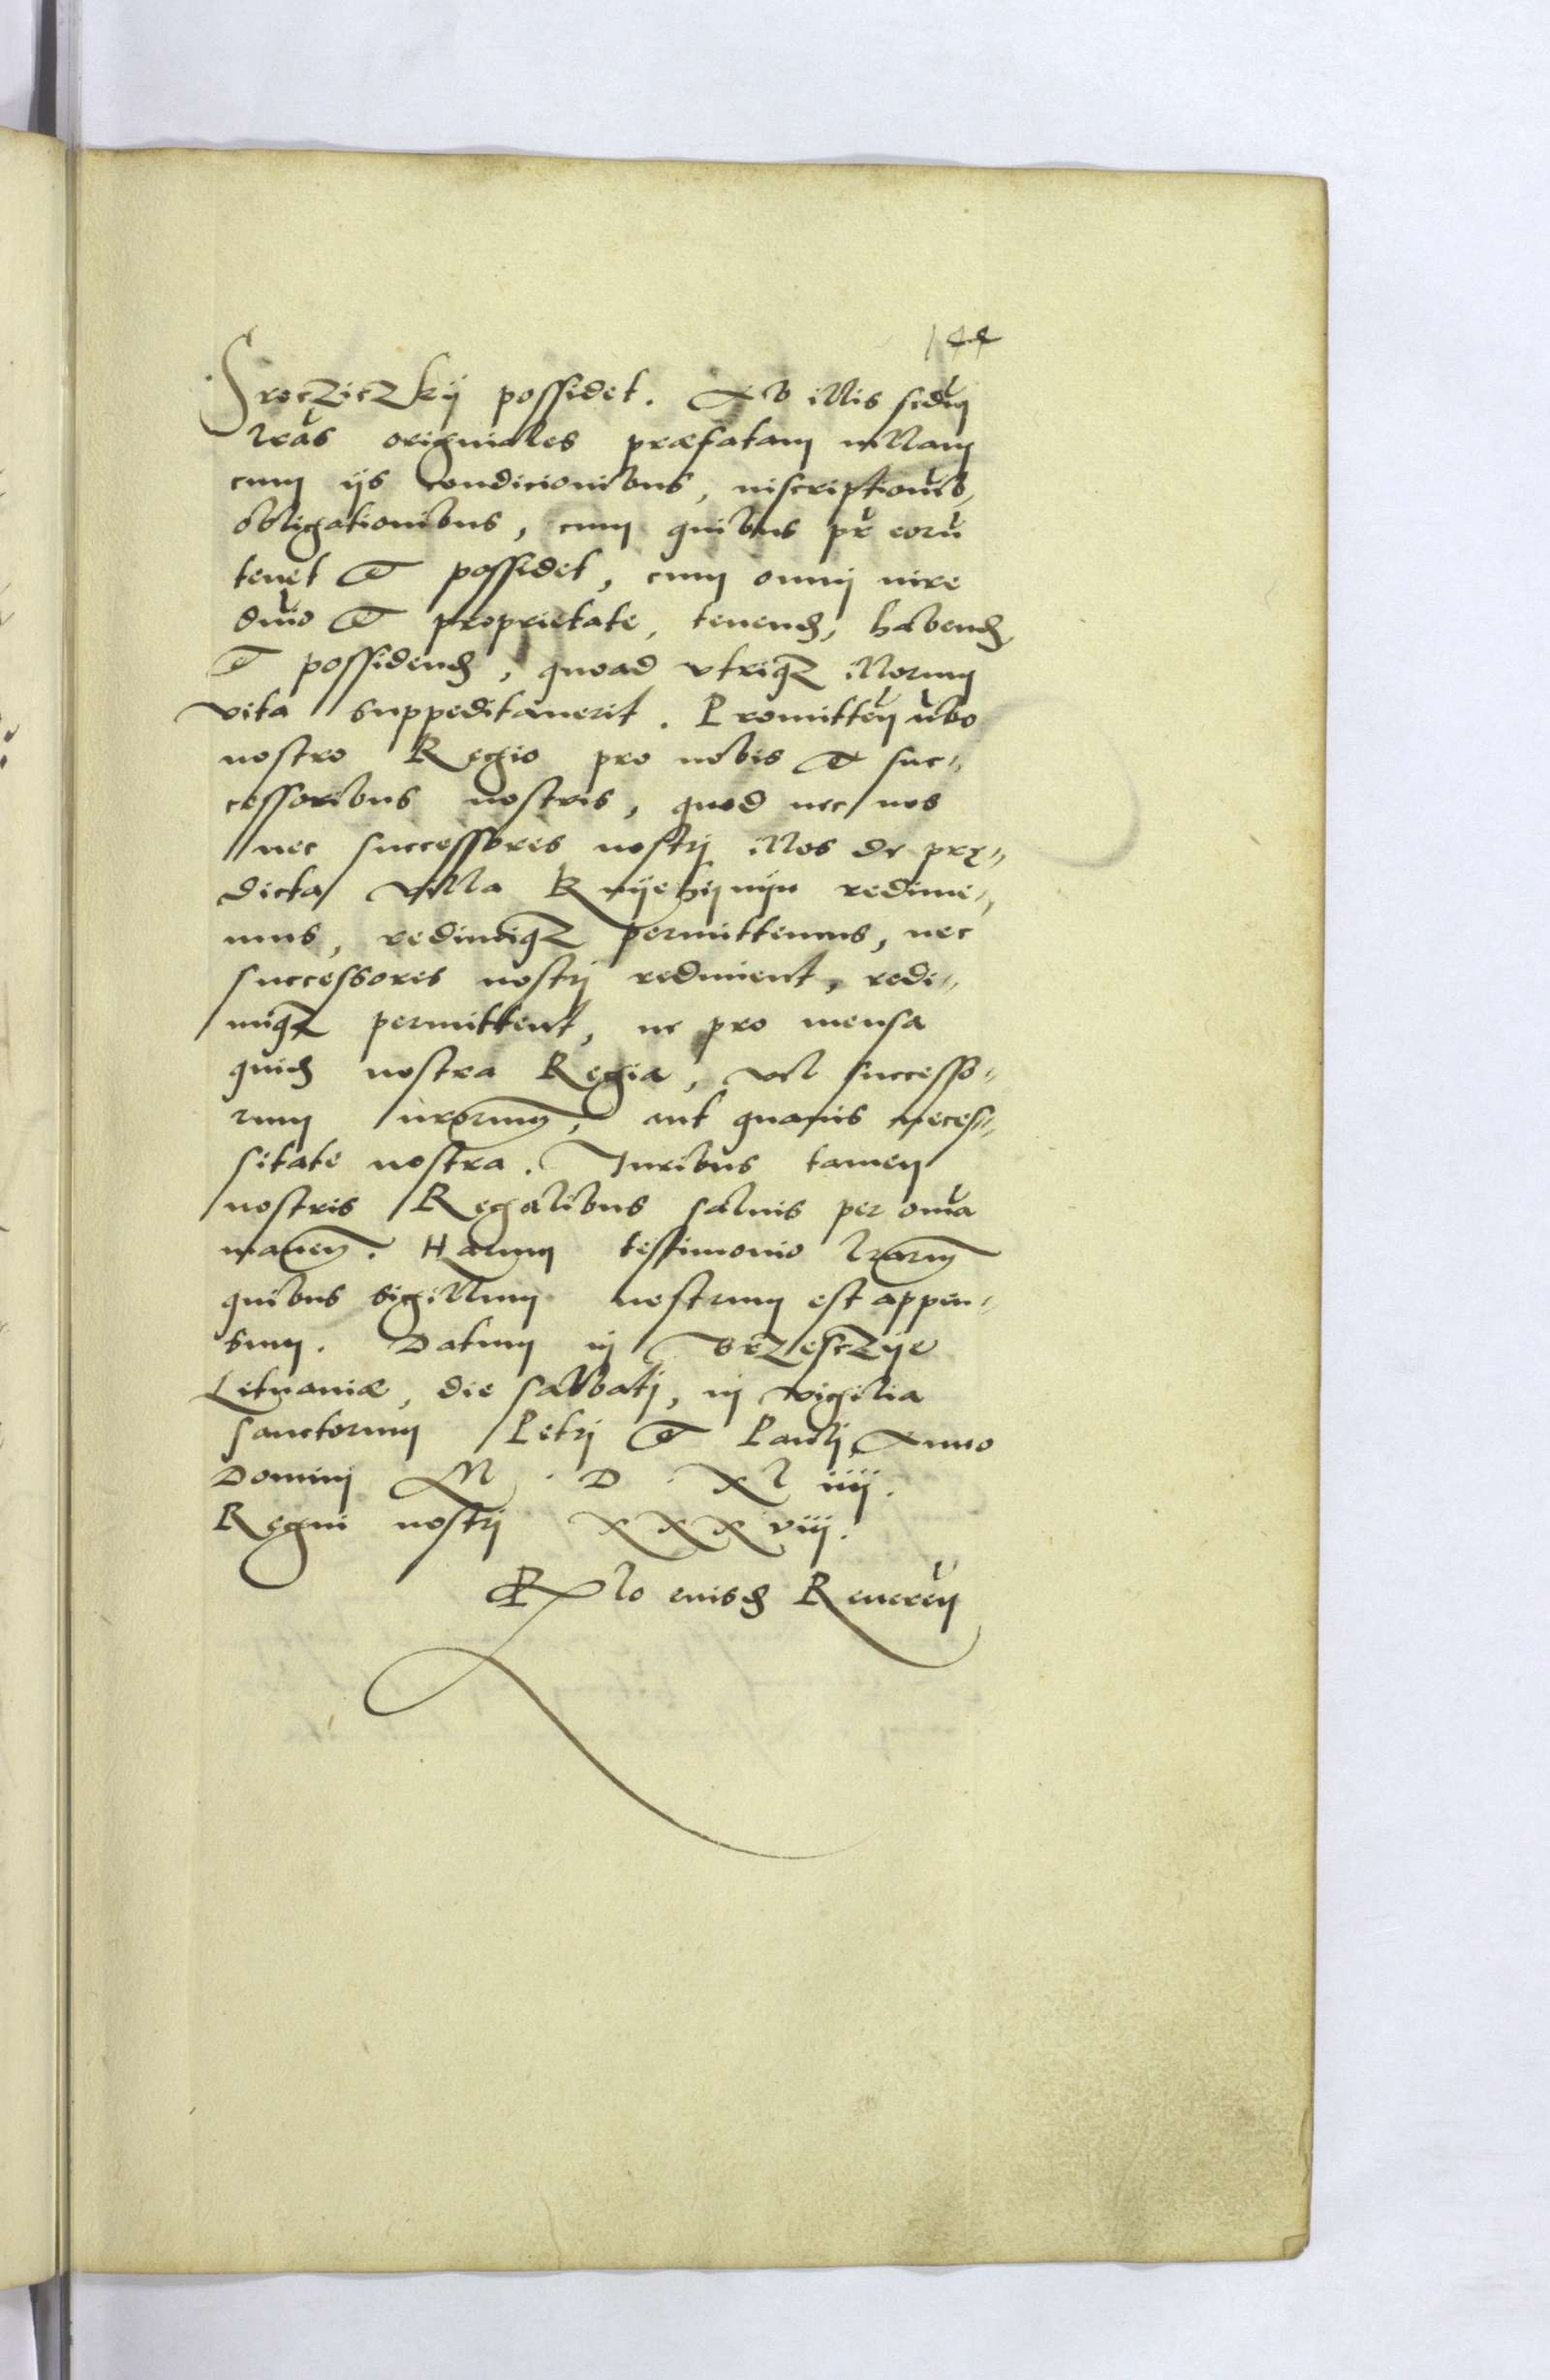 144
Sroczickÿ possidet. Ab illis scdm̃
lrãs originales præfatam villam
cum ijs condicionibus, inscriptionib,
obligationibus, cum quibus pr̃ eorũ
tenet et possidet, cum omnj iure
dñio et proprietate, tenend, habend,
et possidend, quoad vtriqz illorum
vita suppeditauerit. Promitteñ vbo
nostro Regio pro nobis et suc„
cessoribus nostris, quod nec nos
nec successores nostrj illos de prę„
dicta villa Knÿehÿnÿn redime„
mus, redimiqz permittemus, nec
successores nostrj rediment, redi„
miqz permittent, ne pro mensa
quid nostra Regia, vel successo„
rum nrorum, aut quauis neces„
sitate nostra. Iuribus tamen
nostris Regalibus saluis per om̃ia
maneñ. Harum testimonio lrarum
quibus sigillum nostrum est appen„
sum. Datum in Brzesczÿe
Lituaniæ, die sabbatj, in vigilia
sanctorum Petrj et Paulj, Anno
Dominj M. D. XL iiij.
Regni nostrj XXX viij.
Rlo eiusd Reuereñ